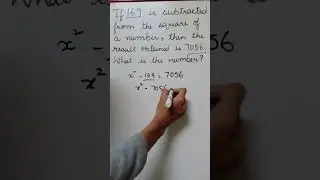 If 169 is subtracted
from the square of
a number, then the
result obtained is 7056.
What is the number?
x² - 169 = 7056
x² - 7056